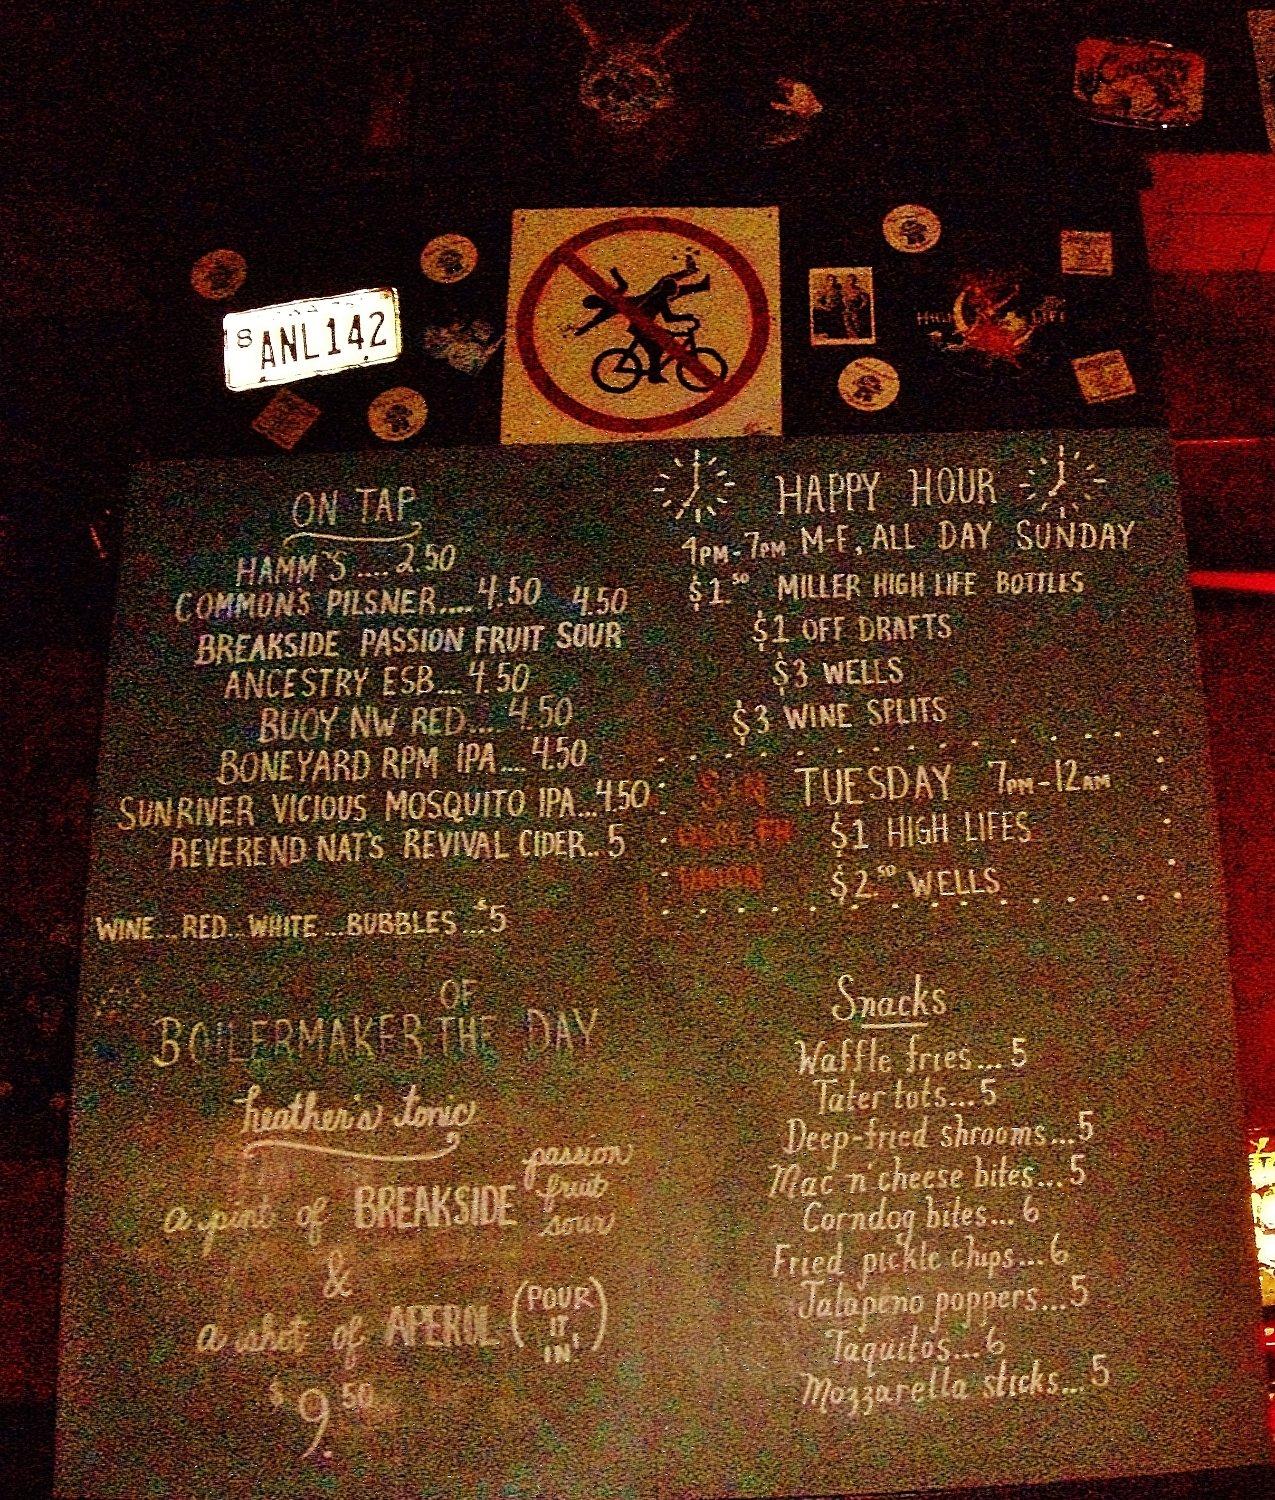 ANL142
HIGH LIFE
ON TAP
HAMM'S....2.50
COMMON'S PILSNER....4.50
4.50
BREAKSIDE PASSION FRUIT SOUR
ANCESTRY ESB....4.50
BUOY NW RED....4.50
BONEYARD RPM IPA....4.50
SUNRIVER VICIOUS MOSQUITO IPA...4.50
REVEREND NAT'S REVIVAL CIDER..5
WINE...RED..WHITE...BUBBLES...$5
OF
BOILERMAKER THE DAY
heather's tonic
a pint of BREAKSIDE passion fruit sour
&
a shot of APEROL (POUR IT IN!)
$9.50
HAPPY HOUR
4PM-7PM M-F, ALL DAY SUNDAY
$1.50 MILLER HIGH LIFE BOTTLES
$1 OFF DRAFTS
$3 WELLS
$3 WINE SPLITS
SIN TUESDAY 7PM-12AM
$1 HIGH LIFES
$2.50 WELLS
Snacks
Waffle fries...5
Tater tots...5
Deep-fried shrooms...5
Mac n' cheese bites...5
Corndog bites...6
Fried pickle chips...6
Jalapeno poppers...5
Taquitos...6
Mozzarella sticks...5